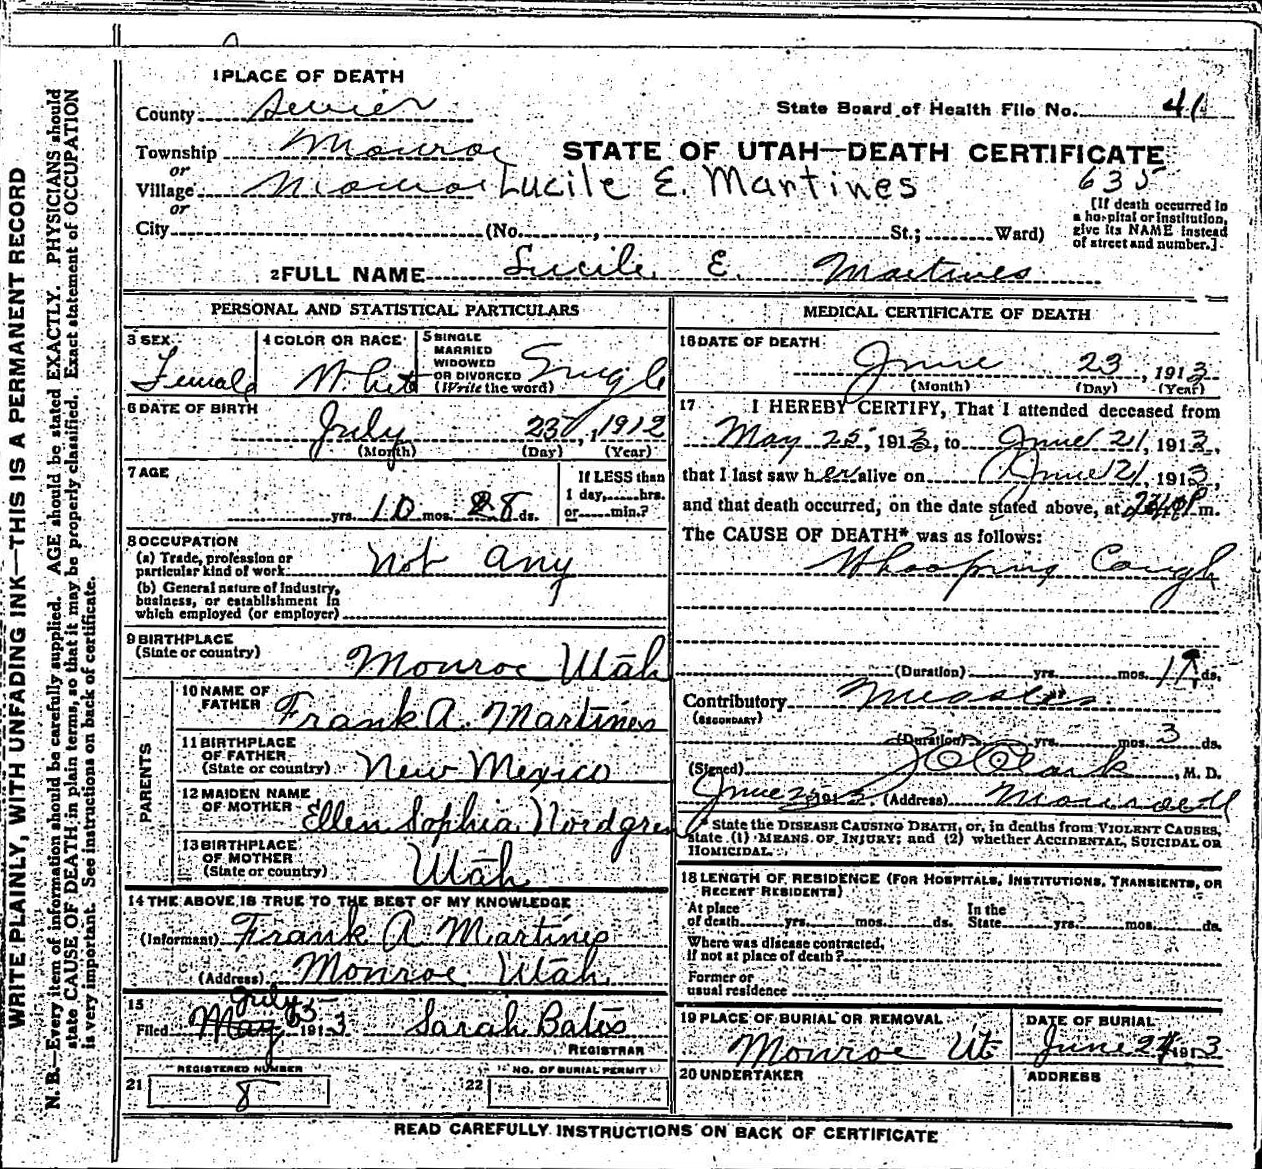 1 PLACE OF DEATH
County Sevier
State Board of Health File No. 41
Township Monroe
or
STATE OF UTAH—DEATH CERTIFICATE
Village Monroe Lucile E. Martines
635
or
City (No. , St.; Ward)
[If death occurred in a hospital or institution, give its NAME instead of street and number.]
2 FULL NAME Lucile E. Martines
PERSONAL AND STATISTICAL PARTICULARS
3 SEX Female
4 COLOR OR RACE White
5 SINGLE MARRIED WIDOWED OR DIVORCED (Write the word) Single
6 DATE OF BIRTH
July 25, 1912
(Month) (Day) (Year)
7 AGE
yrs. 10 mos. 28 ds.
If LESS than 1 day, hrs. or min.?
8 OCCUPATION
(a) Trade, profession or particular kind of work Not any
(b) General nature of industry, business, or establishment in which employed (or employer)
9 BIRTHPLACE
(State or country) Monroe Utah
PARENTS
10 NAME OF FATHER Frank A. Martines
11 BIRTHPLACE OF FATHER (State or country) New Mexico
12 MAIDEN NAME OF MOTHER Ellen Sophia Nordgren
13 BIRTHPLACE OF MOTHER (State or country) Utah
14 THE ABOVE IS TRUE TO THE BEST OF MY KNOWLEDGE
(Informant) Frank A Martines
(Address) Monroe Utah
15
July
Filed May 1913 Sarah Bates
REGISTRAR
REGISTERED NUMBER
21 8
NO. OF BURIAL PERMIT
22
MEDICAL CERTIFICATE OF DEATH
16 DATE OF DEATH
June 23, 1913
(Month) (Day) (Year)
17 I HEREBY CERTIFY, That I attended deceased from
May 25, 1913, to June 21, 1913,
that I last saw her alive on June 21, 1913,
and that death occurred, on the date stated above, at m.
The CAUSE OF DEATH* was as follows:
Whooping Cough
(Duration) yrs. mos. ds.
Contributory Measles
(SECONDARY)
(Duration) yrs. mos. 3 ds.
(Signed) J. C. Clark, M. D.
June 191 (Address) Monroe U
* State the DISEASE CAUSING DEATH, or, in deaths from VIOLENT CAUSES,
state (1) MEANS OF INJURY; and (2) whether ACCIDENTAL, SUICIDAL OR
HOMICIDAL.
18 LENGTH OF RESIDENCE (FOR HOSPITALS, INSTITUTIONS, TRANSIENTS, OR
RECENT RESIDENTS)
At place of death yrs. mos. ds. In the State yrs. mos. ds.
Where was disease contracted,
If not at place of death?
Former or
usual residence
19 PLACE OF BURIAL OR REMOVAL
Monroe Ut
DATE OF BURIAL
June 24 1913
20 UNDERTAKER
ADDRESS
READ CAREFULLY INSTRUCTIONS ON BACK OF CERTIFICATE
WRITE PLAINLY, WITH UNFADING INK—THIS IS A PERMANENT RECORD
N. B.—Every item of information should be carefully supplied. AGE should be stated EXACTLY. PHYSICIANS should
state CAUSE OF DEATH in plain terms, so that it may be properly classified. Exact statement of OCCUPATION
is very important. See instructions on back of certificate.